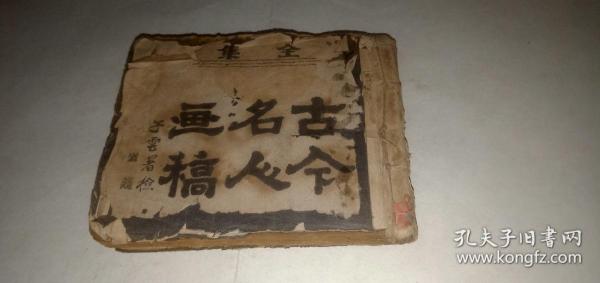 全集
古今
名人
画稿
子云署检
孔夫子旧书网
www.kongfz.com